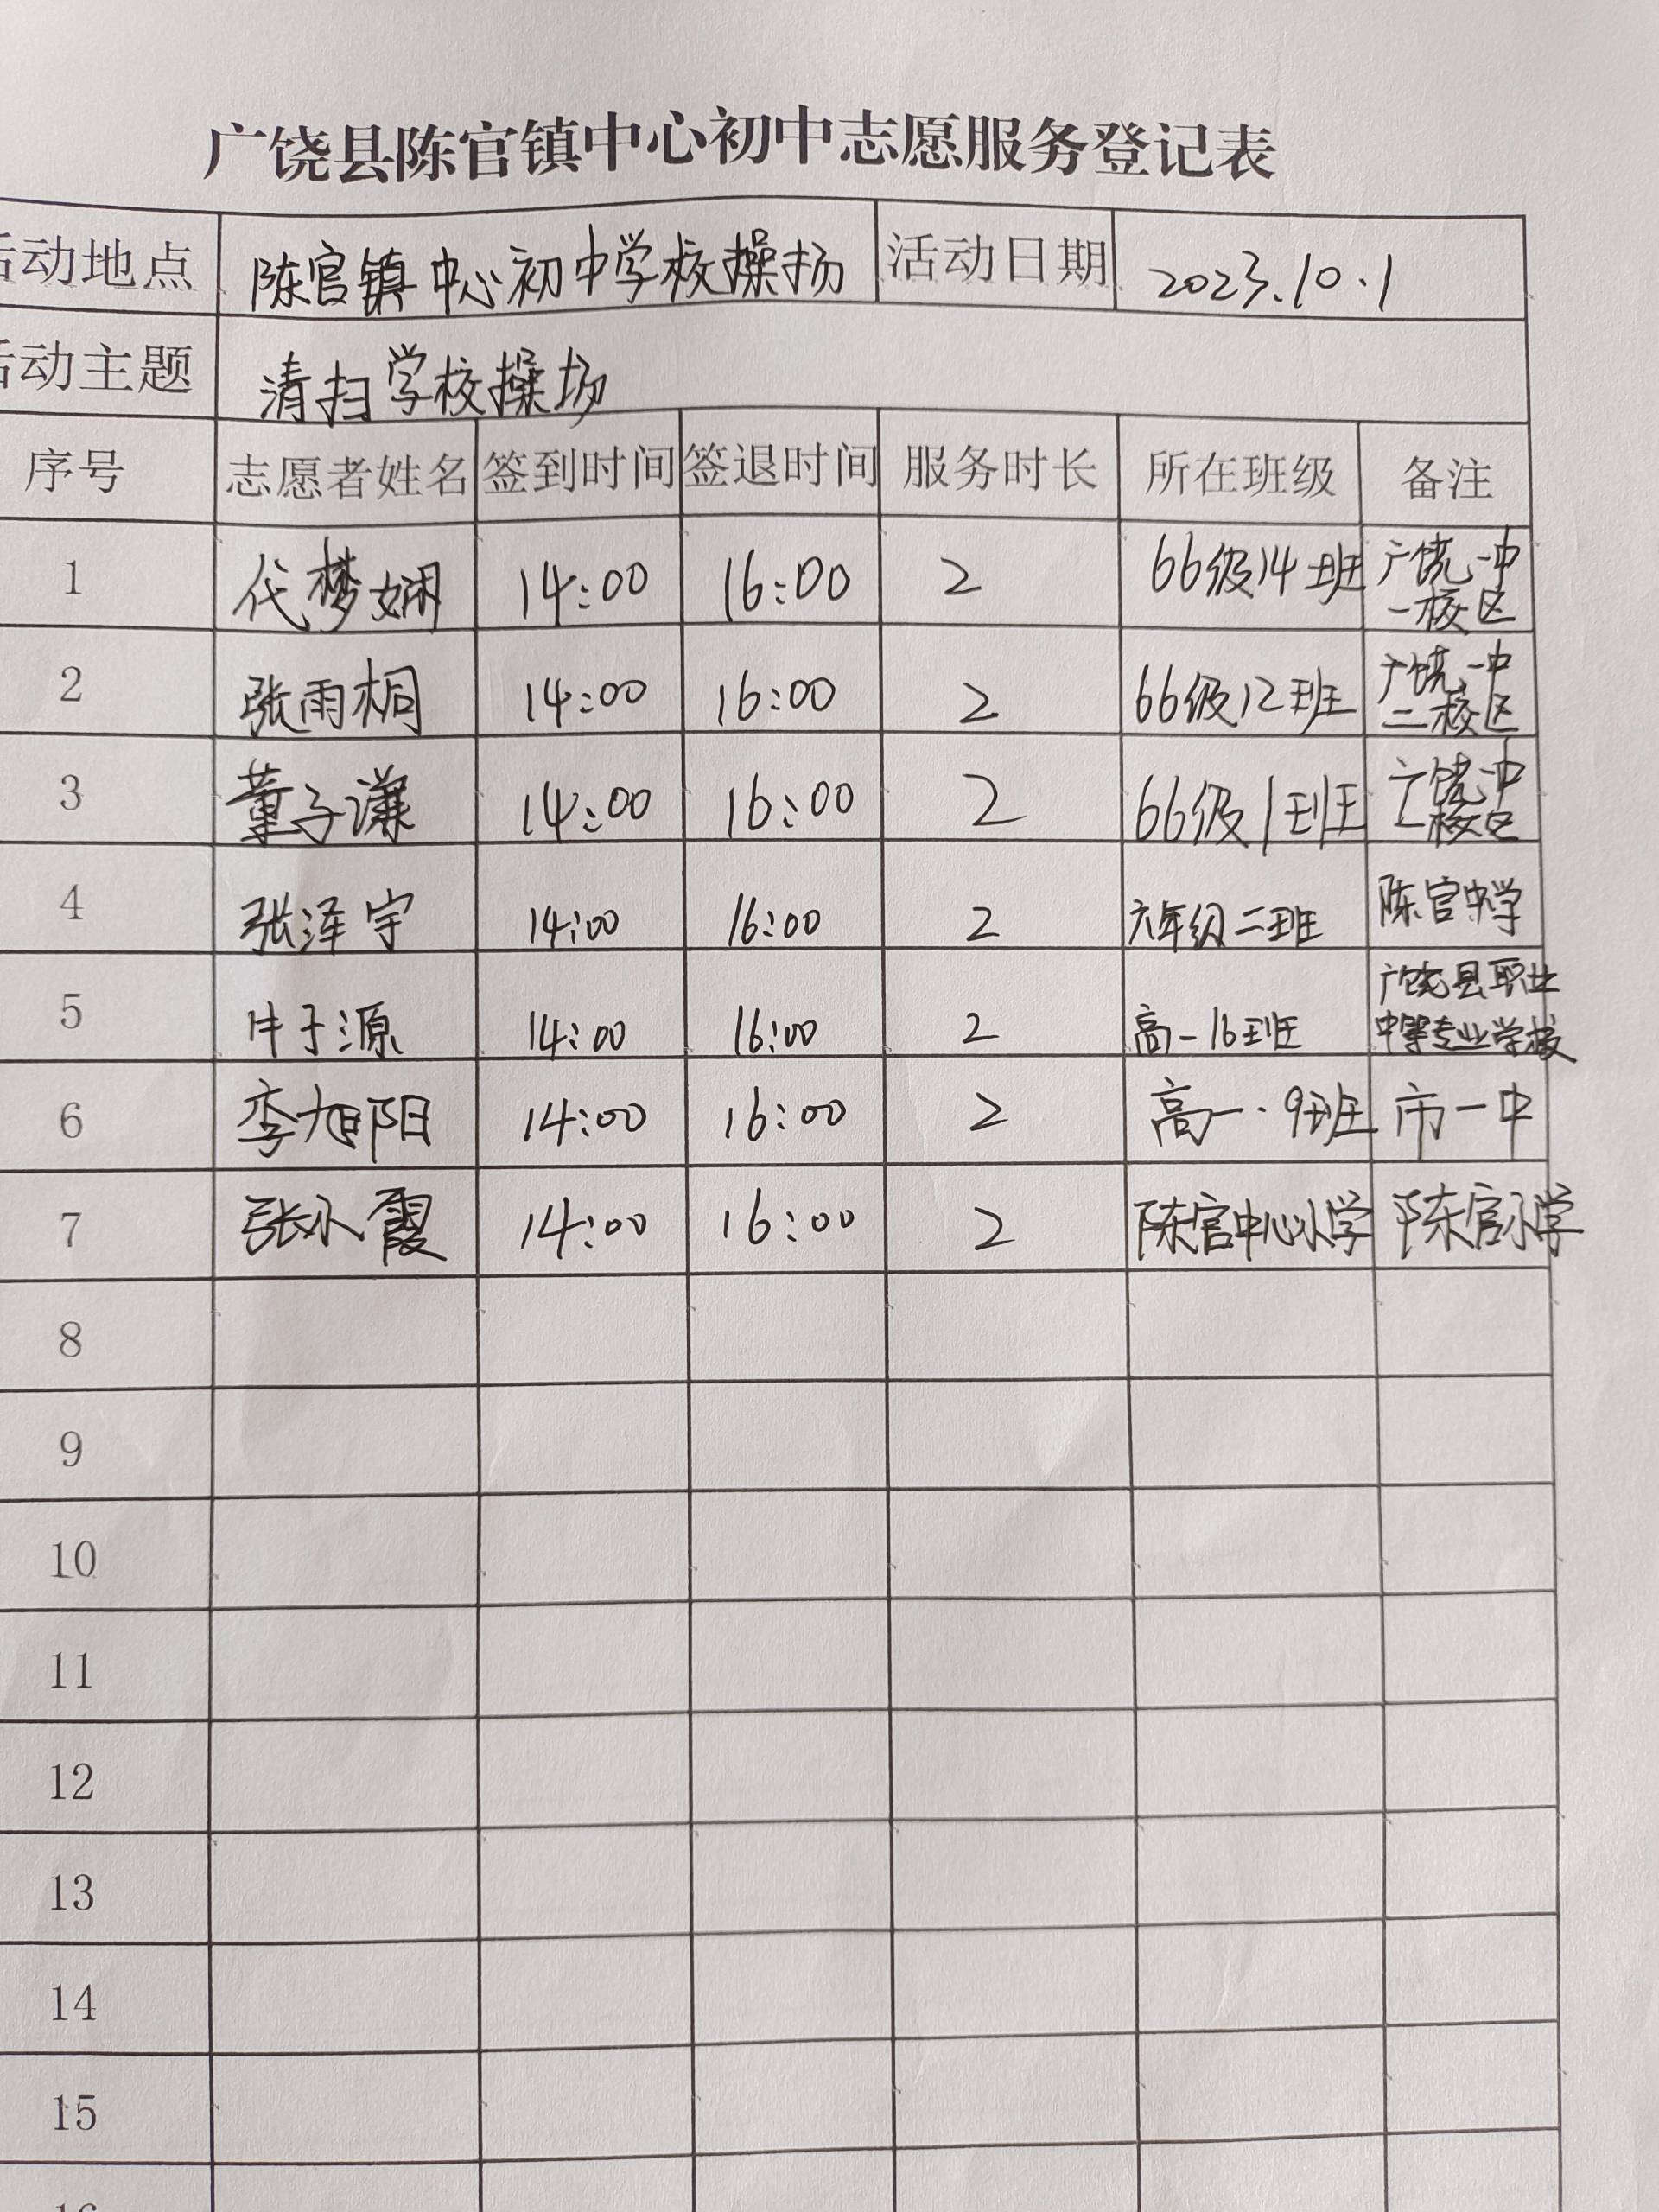 广饶县陈官镇中心初中志愿服务登记表
活动地点 陈官镇中心初中学校操场 活动日期 2023.10.1
活动主题 清扫学校操场
序号 志愿者姓名 签到时间 签退时间 服务时长 所在班级 备注
1 代梦娴 14:00 16:00 2 66级14班 广饶一中
一校区
2 张雨桐 14:00 16:00 2 66级12班 广饶一中
二校区
3 董子谦 14:00 16:00 2 66级1班 广饶一中
校区
4 张泽宇 14:00 16:00 2 六年级二班 陈官中学
5 牛于源 14:00 16:00 2 高一16班 广饶县职业
中等专业学校
6 李旭阳 14:00 16:00 2 高一.9班 市一中
7 张小霞 14:00 16:00 2 陈官中心小学 陈官小学
8
9
10
11
12
13
14
15